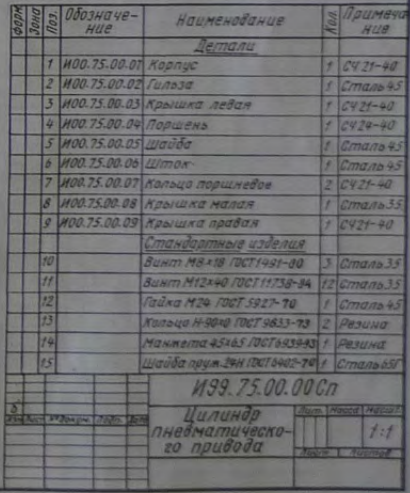 Форм Зона Поз. Обозначе- Наименование Кол. Примеча
ние ние
Детали
1 И00.75.00.01 Корпус 1 СЧ21-40
2 И00.75.00.02 Гильза 1 Сталь45
3 И00.75.00.03 Крышка левая 1 СЧ21-40
4 И00.75.00.04 Поршень 1 СЧ24-40
5 И00.75.00.05 Шайба 1 Сталь45
6 И00.75.00.06 Шток 1 Сталь45
7 И00.75.00.07 Кольцо поршневое 2 СЧ21-40
8 И00.75.00.08 Крышка малая 1 Сталь35
9 И00.75.00.09 Крышка правая 1 СЧ21-40
Стандартные изделия
10 Винт М8×18 ГОСТ1491-80 3 Сталь35
11 Винт М12×40 ГОСТ11738-84 12 Сталь35
12 Гайка М24 ГОСТ5927-70 1 Сталь45
13 Кольцо ГОСТ9833-73 2 Резина
14 Манжета 45×65 1 Резина
15 Шайба пруж.24Н ГОСТ6402-70 1 Сталь65Г
И99.75.00.00Сп
Цилиндр Лит. Масса Масшт.
пневматическо- 1:1
го привода